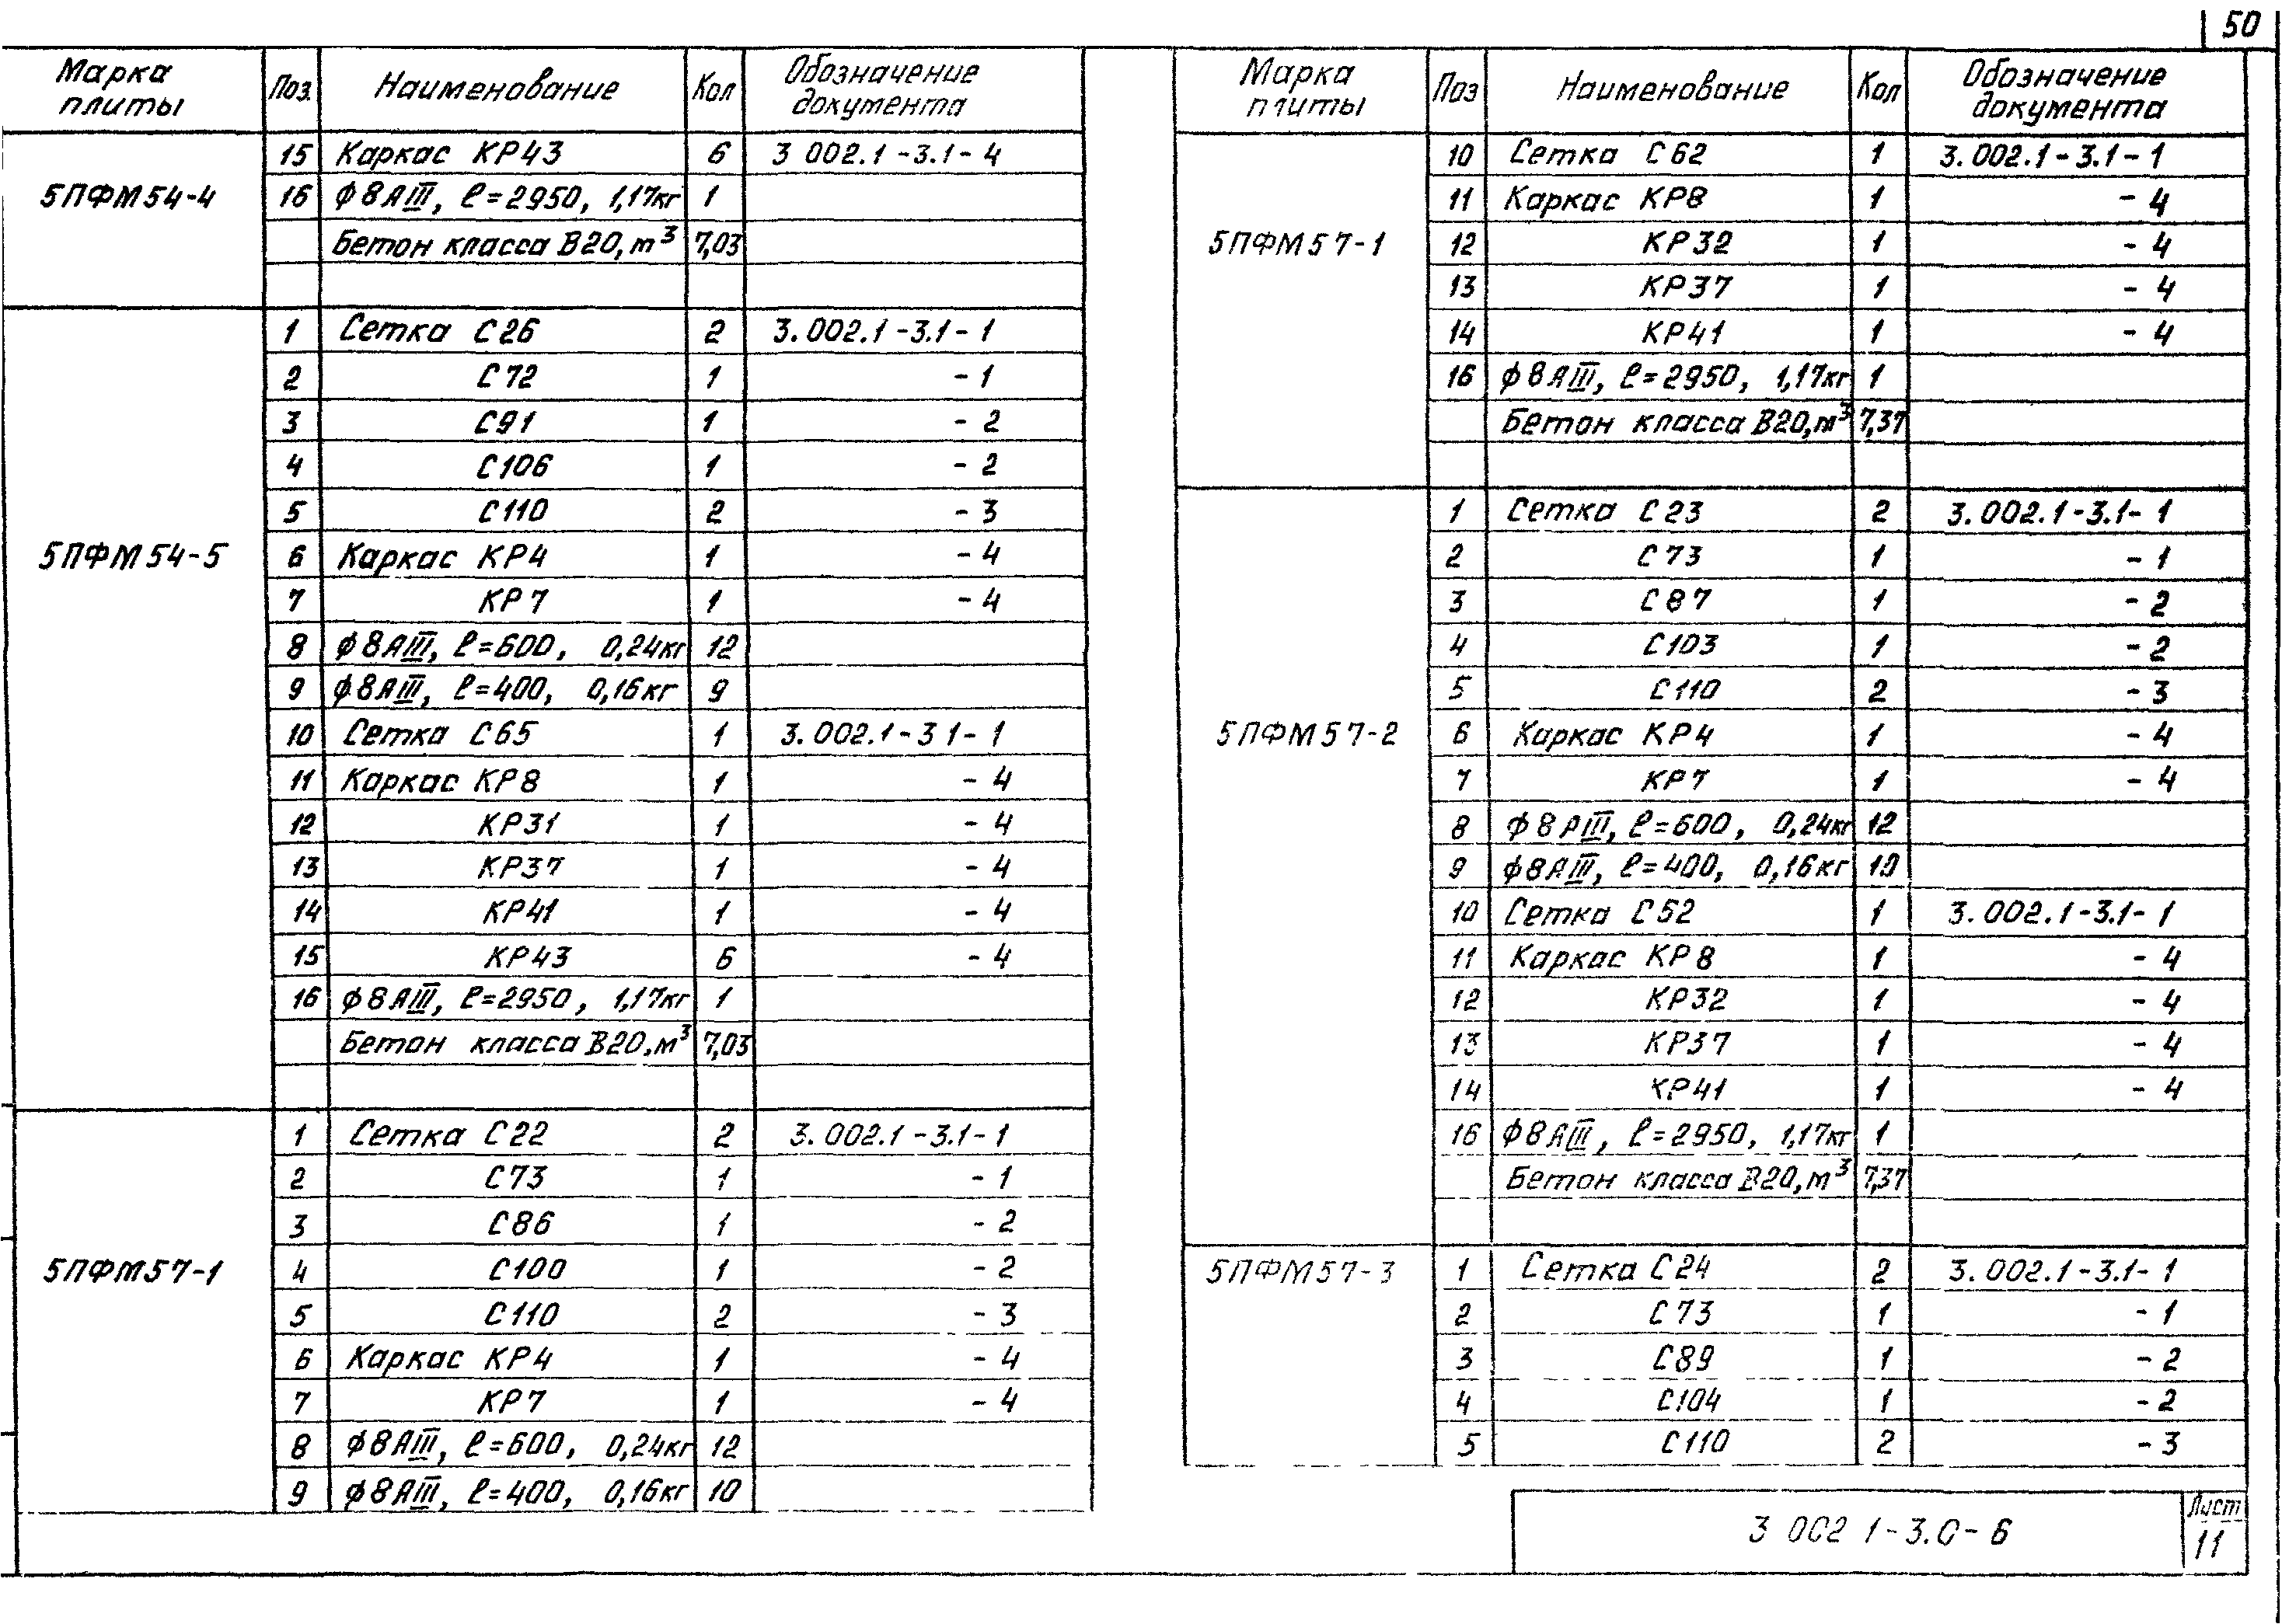 50
Марка плиты Поз. Наименование Кол Обозначение документа
15 Каркас КР43 6 3 002.1-3.1-4
5ПФМ54-4 16 ϕ8АIII, ℓ=2950, 1,17кг 1
Бетон класса В20, м³ 7,03
1 Сетка С26 2 3.002.1-3.1-1
2 С72 1 -1
3 С91 1 -2
4 С106 1 -2
5 С110 2 -3
5ПФМ54-5 6 Каркас КР4 1 -4
7 КР7 1 -4
8 ϕ8АIII, ℓ=600, 0,24кг 12
9 ϕ8АIII, ℓ=400, 0,16кг 9
10 Сетка С65 1 3.002.1-3 1-1
11 Каркас КР8 1 -4
12 КР31 1 -4
13 КР37 1 -4
14 КР41 1 -4
15 КР43 6 -4
16 ϕ8АIII, ℓ=2950, 1,17кг 1
Бетон класса В20, м³ 7,03
1 Сетка С22 2 3.002.1-3.1-1
2 С73 1 -1
3 С86 1 -2
5ПФМ57-1 4 С100 1 -2
5 С110 2 -3
6 Каркас КР4 1 -4
7 КР7 1 -4
8 ϕ8АIII, ℓ=600, 0,24кг 12
9 ϕ8АIII, ℓ=400, 0,16кг 10
Марка плиты Поз Наименование Кол Обозначение документа
10 Сетка С62 1 3.002.1-3.1-1
11 Каркас КР8 1 -4
5ПФМ57-1 12 КР32 1 -4
13 КР37 1 -4
14 КР41 1 -4
16 ϕ8АIII, ℓ=2950, 1,17кг 1
Бетон класса В20, м³ 7,37
1 Сетка С23 2 3.002.1-3.1-1
2 С73 1 -1
3 С87 1 -2
4 С103 1 -2
5 С110 2 -3
5ПФМ57-2 6 Каркас КР4 1 -4
7 КР7 1 -4
8 ϕ8АIII, ℓ=600, 0,24кг 12
9 ϕ8АIII, ℓ=400, 0,16кг 10
10 Сетка С52 1 3.002.1-3.1-1
11 Каркас КР8 1 -4
12 КР32 1 -4
13 КР37 1 -4
14 КР41 1 -4
16 ϕ8АIII, ℓ=2950, 1,17кг 1
Бетон класса В20, м³ 7,37
5ПФМ57-3 1 Сетка С24 2 3.002.1-3.1-1
2 С73 1 -1
3 С89 1 -2
4 С104 1 -2
5 С110 2 -3
3 002 1-3.0-6
Лист
11